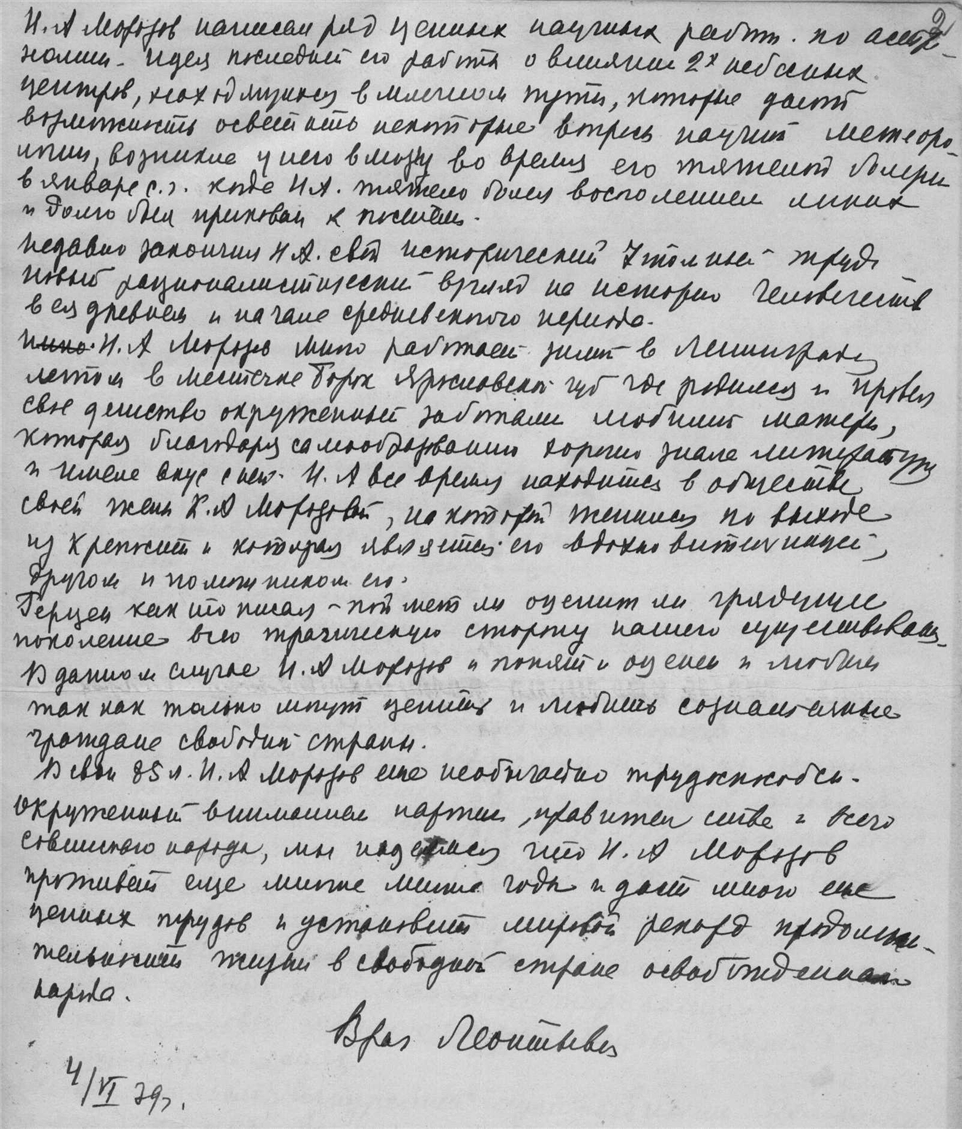 2
Н. А Морозов написал ряд ценных научных работ. по астро-
номии. Идея последней его работы о влиянии 2х небесных
центров, находящихся в млечном пути, которые дают
возможность осветить некоторые вопросы научной метеоро-
логии, возникла у него в мозгу во время его тяжелой болезни
в январе с.г. когда Н.А. тяжело болел восполением легких
и долго был прикован к постели.
Недавно закончил Н.А. свой исторический 7 томный труд
новый рационалистический взгляд на историю человечества
в ея древнем и начале средневекового периода.
Н. А Морозов много работает зимой в Ленинграде,
летом в местечке Борок Ярославской губ где родился и провел
свое детство окруженный заботами любимой матери,
которая благодаря самообразованию хорошо знала литературу
и имела вкус к ней. Н. А все время находится в обществе
своей жены К. А Морозовой, на которой женился по выходе
из крепости и которая является его вдохновительницей,
другом и помощником его.
Герцен как то писал - поймет ли оценит ли грядущее
поколение всю трагическую сторону нашего существования.
В данном случае Н. А Морозов и понят и оценен и любим
так как только могут ценить и любить сознательные
граждане свободной страны.
В свои 85 л. Н. А Морозов еще необычайно трудоспособен.
Окруженный вниманием партии, правительства и всего
советского народа, мы надеемся что Н. А Морозов
проживет еще многие многие годы и даст много еще
ценных трудов и установит мировой рекорд продолжи-
тельности жизни в свободной стране освобожденного
народа.
Врач Леонтьева
4/VI 39г.